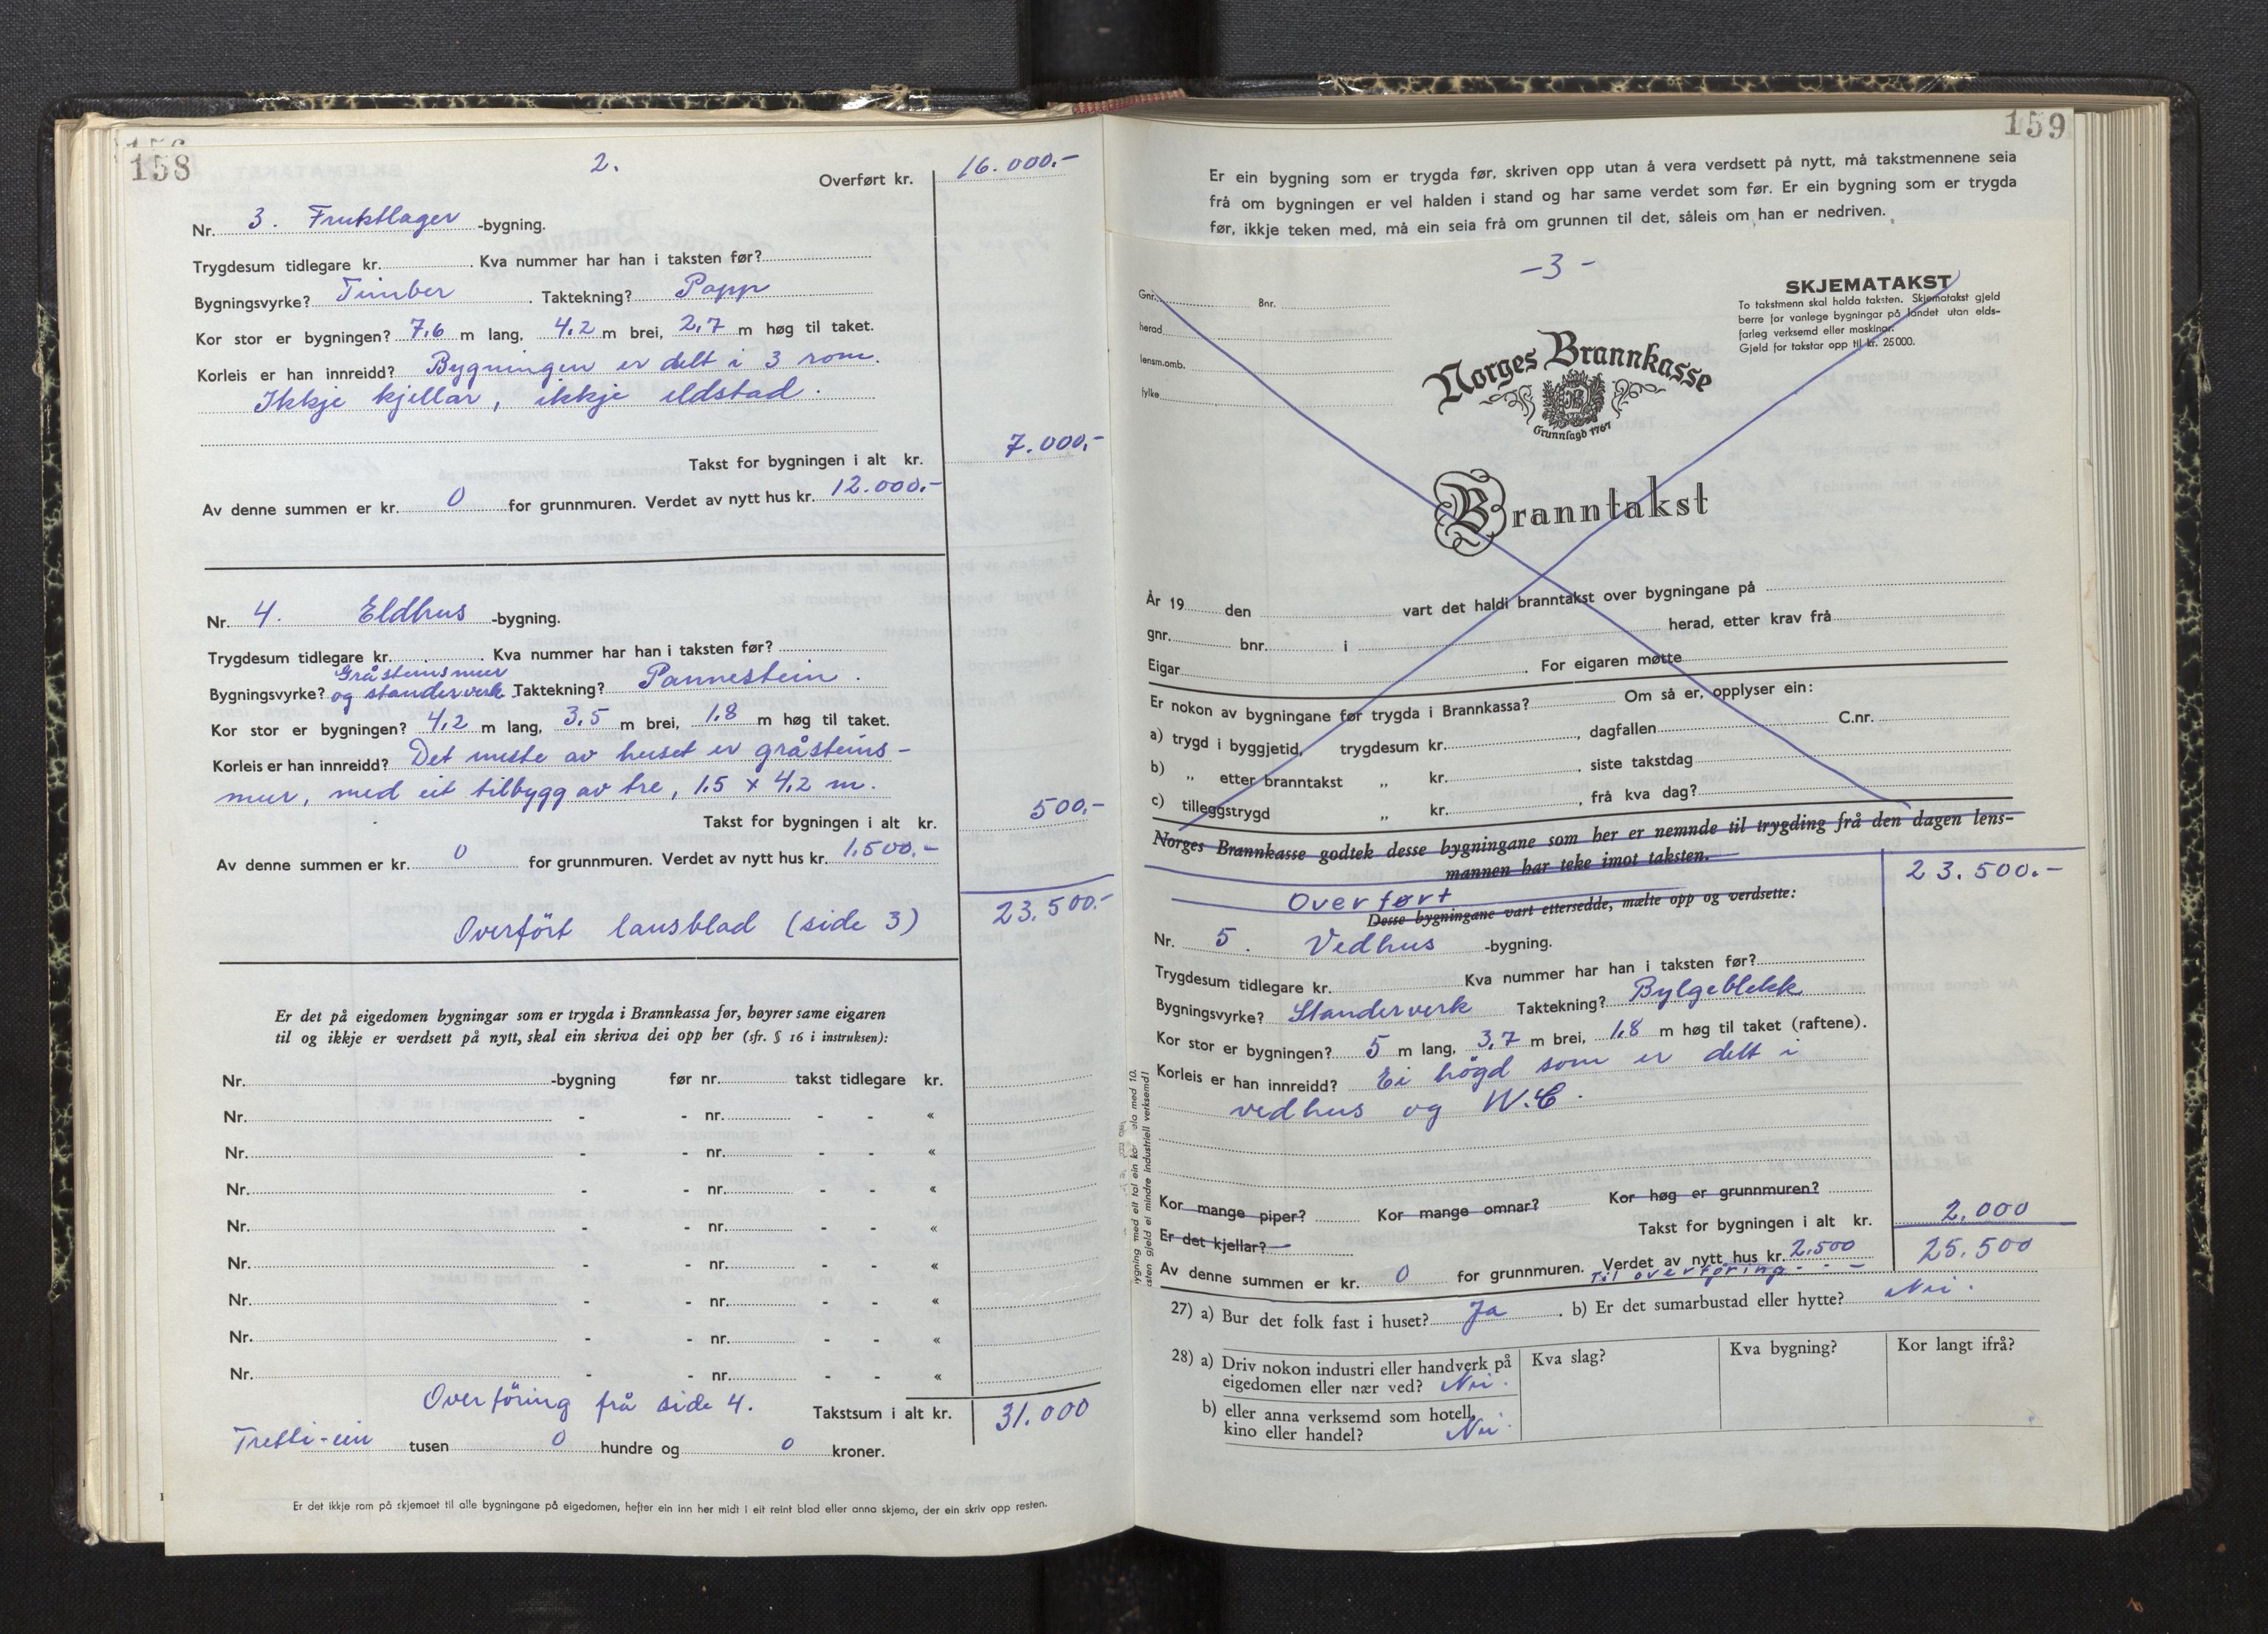 158
2.
Overført kr. 16.000.-
Nr. 3. Fruktlager -bygning.
Trygdesum tidlegare kr. Kva nummer har han i taksten før?
Bygningsvyrke? Timber . Taktekning? Papp
Kor stor er bygningen? 7,6 m lang, 4,2 m brei, 2,7 m høg til taket.
Korleis er han innreidd? Bygningen er delt i 3 rom.
Ikkje kjellar, ikkje eldstad.
Takst for bygningen i alt kr. 7.000,-
Av denne summen er kr. 0 for grunnmuren. Verdet av nytt hus kr. 12.000.-
Nr. 4. Eldhus -bygning.
Trygdesum tidlegare kr. Kva nummer har han i taksten før?
Gråsteinsmur
Bygningsvyrke? og standerverk Taktekning? Pannestein.
Kor stor er bygningen? 4,2 m lang, 3,5 m brei, 1,8 m høg til taket.
Korleis er han innreidd? Det meste av huset er gråsteins-
mur, med eit tilbygg av tre, 1,5 x 4,2 m.
Takst for bygningen i alt kr. 500,-
Av denne summen er kr. 0 for grunnmuren. Verdet av nytt hus kr. 1.500.-
Overfört lausblad (side 3) 23.500.-
Er det på eigedomen bygningar som er trygda i Brannkassa før, høyrer same eigaren
til og ikkje er verdsett på nytt, skal ein skriva dei opp her (sfr. § 16 i instruksen):
Nr. -bygning før nr. takst tidlegare kr.
Nr. - - nr. - - «
Nr. - - nr. - - «
Nr. - - nr. - - «
Nr. - - nr. - - «
Nr. - - nr. - - «
Nr. - - nr. - - «
Nr. - - nr. - - «
Nr. - - nr. - - «
Overföring frå side 4. Takstsum i alt kr. 31.000
Tretti-ein tusen 0 hundre og 0 kroner.
Er det ikkje rom på skjemaet til alle bygningane på eigedomen, hefter ein inn her midt i eit reint blad eller anna skjema, der ein skriv opp resten.
159
Er ein bygning som er trygda før, skriven opp utan å vera verdsett på nytt, må takstmennene seia
frå om bygningen er vel halden i stand og har same verdet som før. Er ein bygning som er trygda
før, ikkje teken med, må ein seia frå om grunnen til det, såleis om han er nedriven.
-3-
Gnr. Bnr.
herad
lensm.omb.
fylke
SKJEMATAKST
To takstmenn skal halda taksten. Skjematakst gjeld
berre for vanlege bygningar på landet utan elds-
farleg verksemd eller maskinar.
Gjeld for takstar opp til kr. 25000.
Norges Brannkasse
Grunnlagd 1767
Branntakst
År 19 den vart det haldi branntakst over bygningane på
gnr. bnr. i herad, etter krav frå
Eigar For eigaren møtte
Er nokon av bygningane før trygda i Brannkassa? Om så er, opplyser ein:
a) trygd i byggjetid, trygdesum kr. , dagfallen C.nr.
b) „ etter branntakst „ kr. , siste takstdag
c) tilleggstrygd „ kr. , frå kva dag?
Norges Brannkasse godtek desse bygningane som her er nemnde til trygding frå den dagen lens-
mannen har teke imot taksten.
Overført 23.500.-
Desse bygningane vart ettersedde, mælte opp og verdsette:
Nr. 5. Vedhus -bygning.
Trygdesum tidlegare kr. Kva nummer har han i taksten før?
Bygningsvyrke? Standerverk Taktekning? Bylgeblekk
Kor stor er bygningen? 5 m lang, 3,7 m brei, 1,8 m høg til taket (raftene).
Korleis er han innreidd? Ei högd som er delt i
vedhus og W.C.
Kor mange piper? Kor mange omnar? Kor høg er grunnmuren?
Er det kjellar? Takst for bygningen i alt kr. 2.000
Av denne summen er kr. 0 for grunnmuren. Verdet av nytt hus kr. 2.500
Til overföring - - - 25.500
27) a) Bur det folk fast i huset? Ja . b) Er det sumarbustad eller hytte? Nei.
28) a) Driv nokon industri eller handverk på
eigedomen eller nær ved? Nei.
Kva slag? Kva bygning? Kor langt ifrå?
b) eller anna verksemd som hotell,
kino eller handel? Nei.